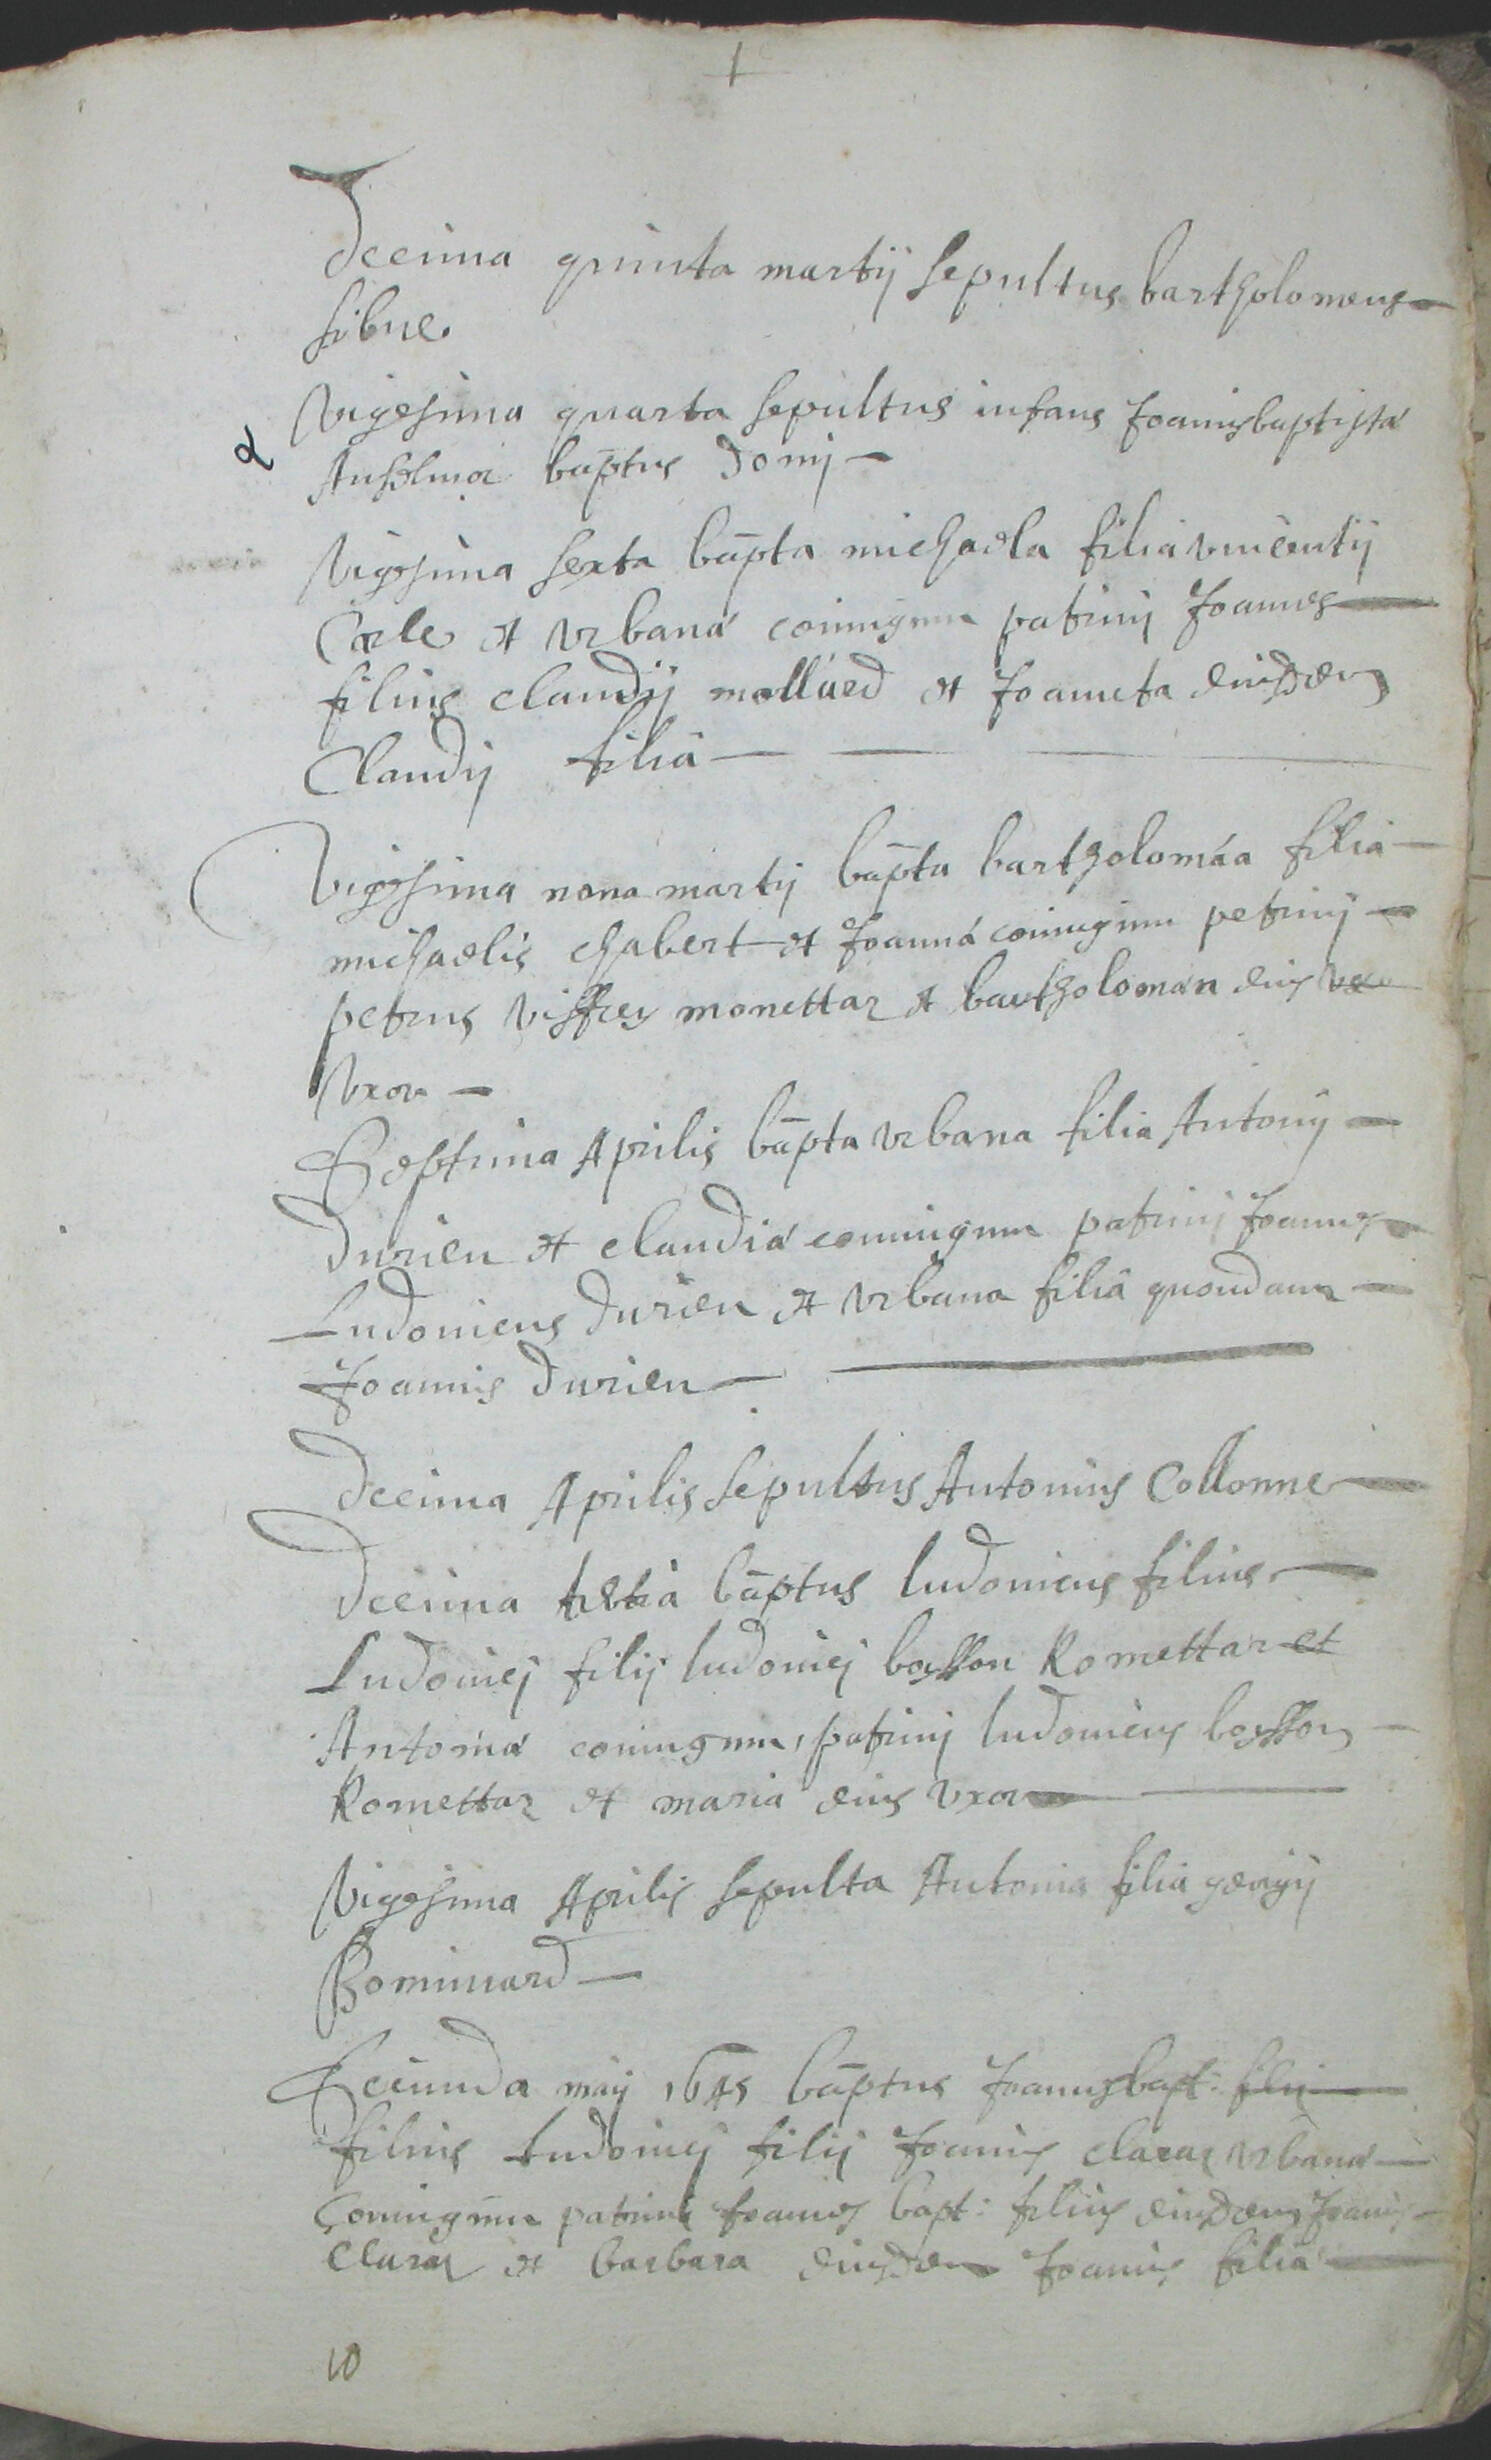 Decima quinta martij sepultus bartholomeus
sibue.
Vigesima quarta sepultus infans Joannisbaptistæ
Anselmoz bāptus domj
Vigesima sexta bāpta michaela filia vincentij
Carle et vrbanæ coniugum patrinj Joannes
filius claudij mollard et Joanneta eiusdem
Claudij filia
Vigesima nona martij bāpta bartholomæa filia
michaelis chabert et Joannæ coniugum petrinj
petrus viffrey monettaz et bartholomæa eius
vxor
Septima Aprilis bāpta vrbana filia Antonij
Durieu et claudiæ coniugum patrinj Joannes
Ludouicus durieu et vrbana filia quondam
Joannis durieu
Decima Aprilis sepultus Antonius Collonne
Decima tertia bāptus ludouicus filius
Ludouicj filij ludouicj bosson Romettaz et
Antoniæ coniugum, patrinj ludouicus bosson
Romettaz et maria eius vxor
Vigesima Aprilis sepulta Antonia filia georgij
Bominard
Secunda maij 1645 bāptus Joannesbapt: filij
filius Ludouicj filij Joannis claraz vrbanæ
Coniugum patrini Joannes bapt: filius eiusdem Joannis
Claraz et barbara eiusdem Joannis filia
10